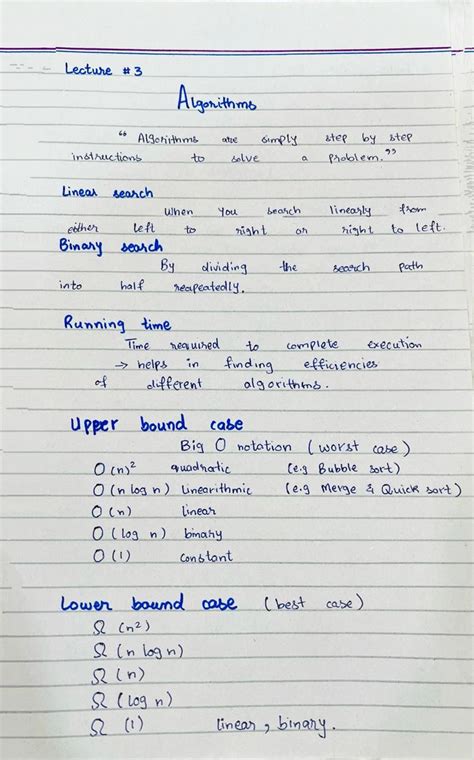 Lecture #3
Algorithms
“ Algorithms are simply step by step
instructions to solve a problem.”
Linear search
When you search linearly from
either left to right or right to left.
Binary search
By dividing the search path
into half reapeatedly.
Running time
Time required to complete execution
→ helps in finding efficiencies
of different algorithms.
Upper bound case
Big O notation (worst case)
O(n)² quadratic (e.g Bubble sort)
O(n log n) Linearithmic (e.g Merge & Quick sort)
O(n) linear
O(log n) binary
O(1) constant
Lower bound case (best case)
Ω (n²)
Ω (n log n)
Ω (n)
Ω (log n)
Ω (1) linear, binary.